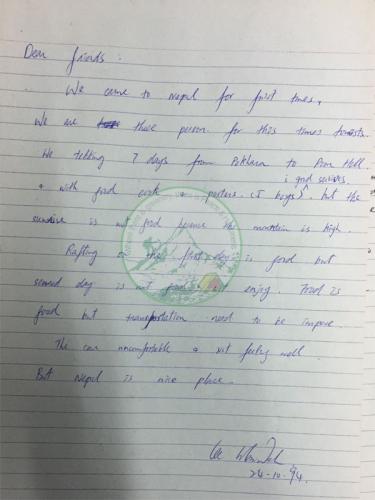 Dear friends :
We came to Nepal for first times,
We are three person for this times tourists.
We tekking 7 days from Pokhara to Poon Hill.
& good services.
+ with food cook + porters (5 boys), but the
sunrise is not good because the mountain is high.
Rafting on the first day is good but
second day is not good enjoy. Food is
good but transportation need to be improve.
The car uncomfortable & not feeling well.
But Nepal is nice place.
24-10-94.